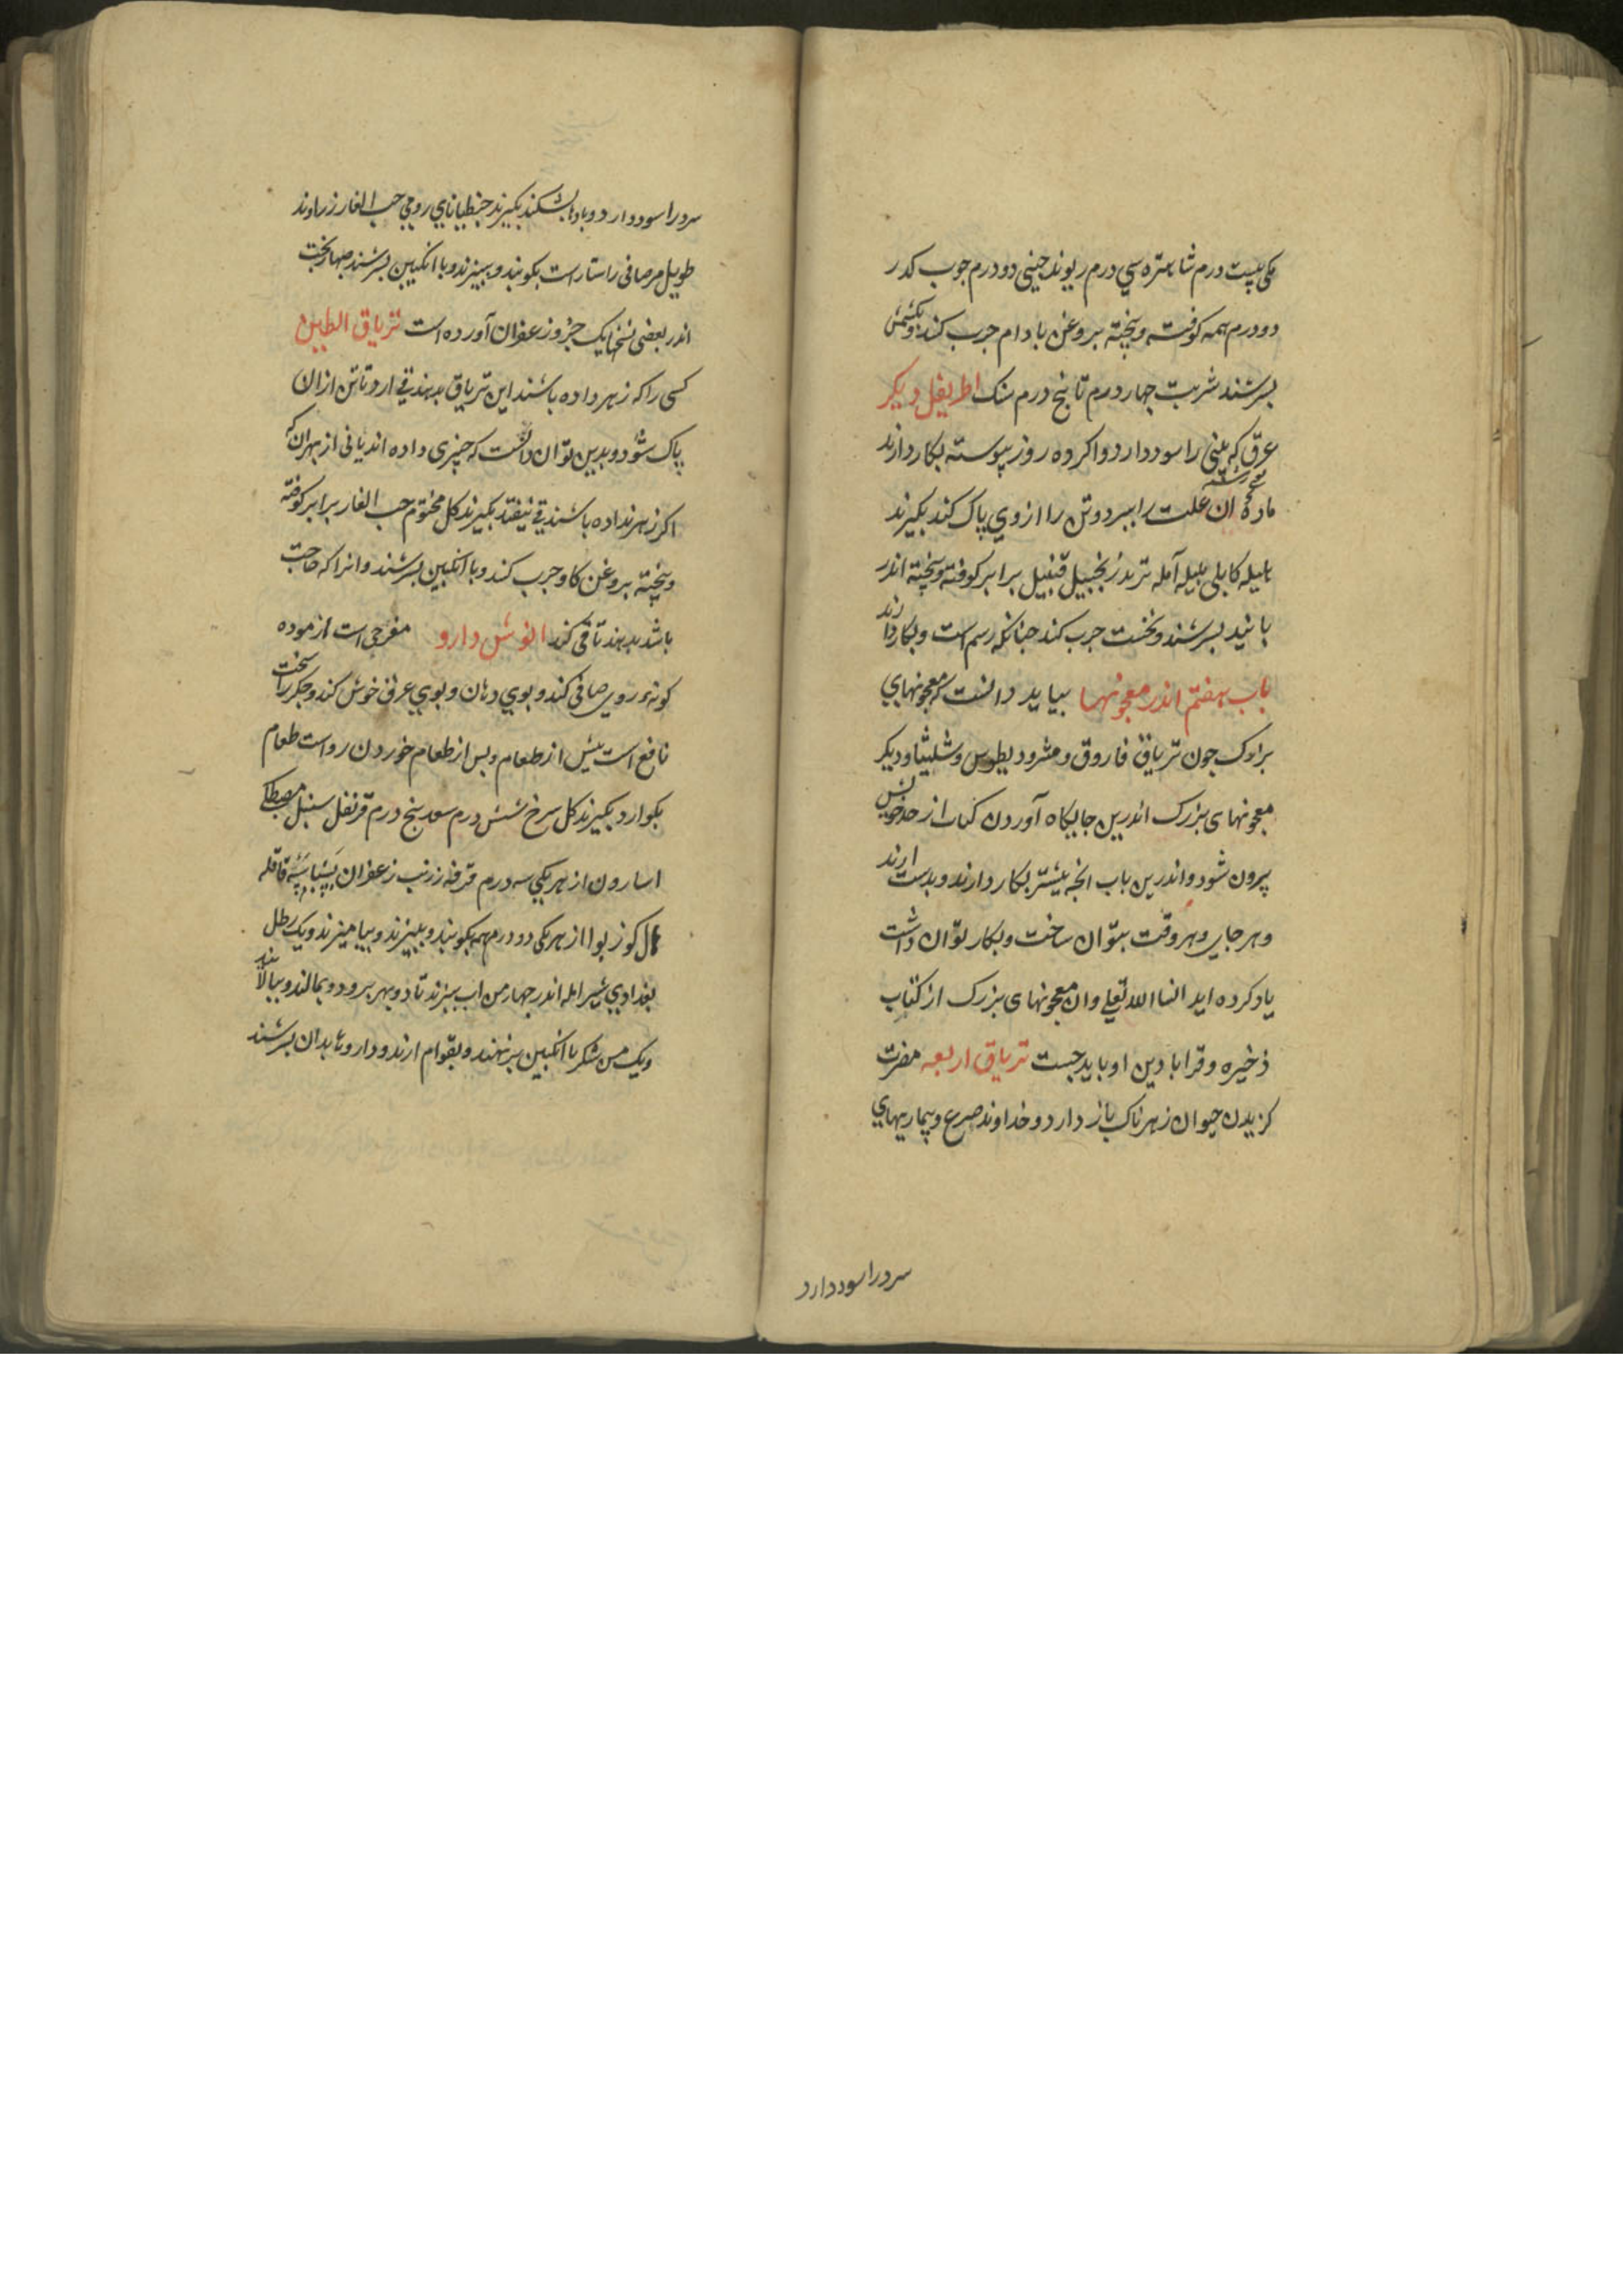 مکی بیست درم شاهتره سی درم ریوند چینی دو درم جوب کدر
دو درم همه کوفته و بیخته بروغن بادام جرب کند و بکشمش
بسرشند شربت جهار درم تا بنج درم سنک اطریفل دیکر
عرق که منی را سود دارد واکر ده روز پیوسته بکار دارند
ماده ان علت را ببرد وتن را از وی پاک کند بکیرند
هلیله کابلی بلیله آمله تربد زنجبیل قنبیل برابر کوفته و بیخته اندر
بانید بسرشند ونخست جرب کند جنانکه رسم است وبکار دارند
باب هفتم اندر معجونها بباید دانست که معجونهای
بزرک جون تریاق فاروق و مثرودیطوس وشلیثا ودیکر
معجونهای بزرک اندرین جایکاه آوردن کتاب از حد خویش
بیرون شود واندرین باب انجه بیشتر بکار دارند وبدست ارند
وهر جای وهر وقت بتوان ساخت وبکار توان داشت
یاد کرده اید انشا الله تعلی وان معجونهای بزرک از کتاب
ذخیره وقرابادین او باید جست تریاق اربعه مضرت
کزیدن حیوان زهرناک باز دارد وخداوند صرع وبیماریهای
سرد را سود دارد
سرد را سود دارد و بادها بشکند بکیرند جنطیانای رومی حب الغار زراوند
طویل مر صافی راستا راست بکوبند وببیزند وبا انکبین بسرشند
اندر بعضی نسخها یک جزو زعفران آورده است تریاق الطین
کسی را که زهر داده باشند این تریاق بدهند قی ارد تا تن از ان
پاک شود وبدین توان دانست که چیزی داده اند یا نی از بهر ان که
اکر زهر نداده باشند قی نیفتد بکیرند کل مختوم حب الغار برابر کوفته
وبیخته بروغن کاو جرب کند وبا انکبین بسرشند وانرا که حاجت
باشد بدهند تا قی کند انوش دارو مفرحی است ازموده
کونه روی صافی کند و بوی دهان وبوی عرق خوش کند وجکر را سخت
نافع است بیش از طعام وبس از طعام خوردن رواست طعام
بکوارد بکیرند کل سرخ شش درم سعد بنج درم قرنفل سنبل مصطکی
اسارون از هر یکی سه درم قرفه زرنب زعفران بسباسه قاقله
هال کوز بوا از هر یکی دو درم همه بکوبند و ببیزند وبیامیزند ویک رطل
بغدادی شیر امله اندر جهار من اب ببزند تا دو بهر برود وبمالند وببالایند
ویک من شکر با انکبین برنهند وبقوام ارند وداروها بدان بسرشند